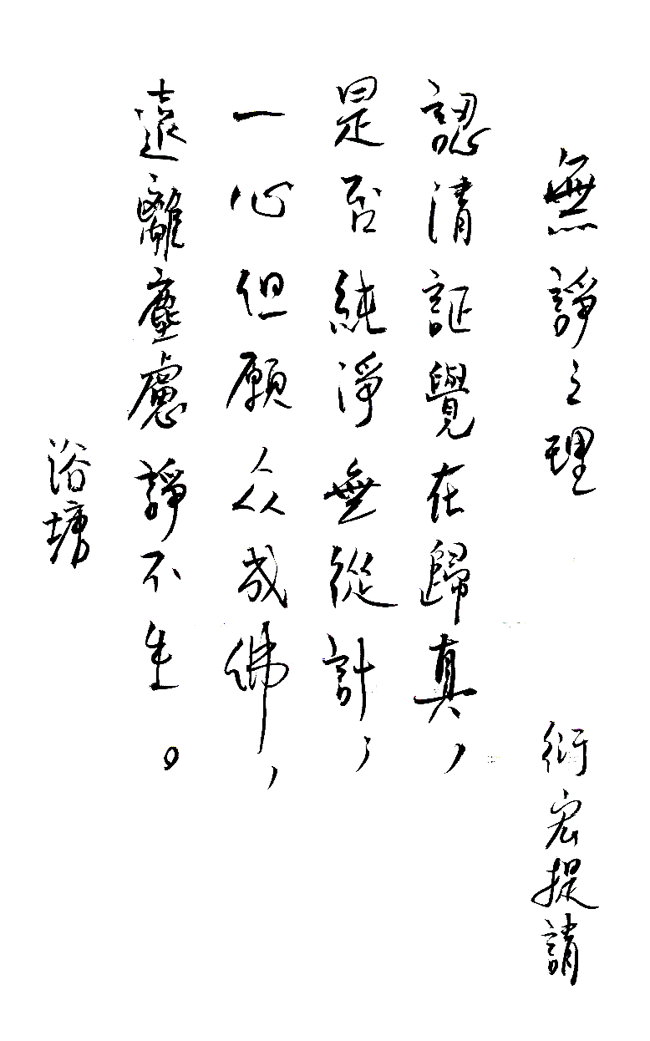 無諍之理 衍宏提請
認清証覺在歸真，
是否純淨無從計，
一心但願众成佛，
遠離塵慮諍不生。
浴塘